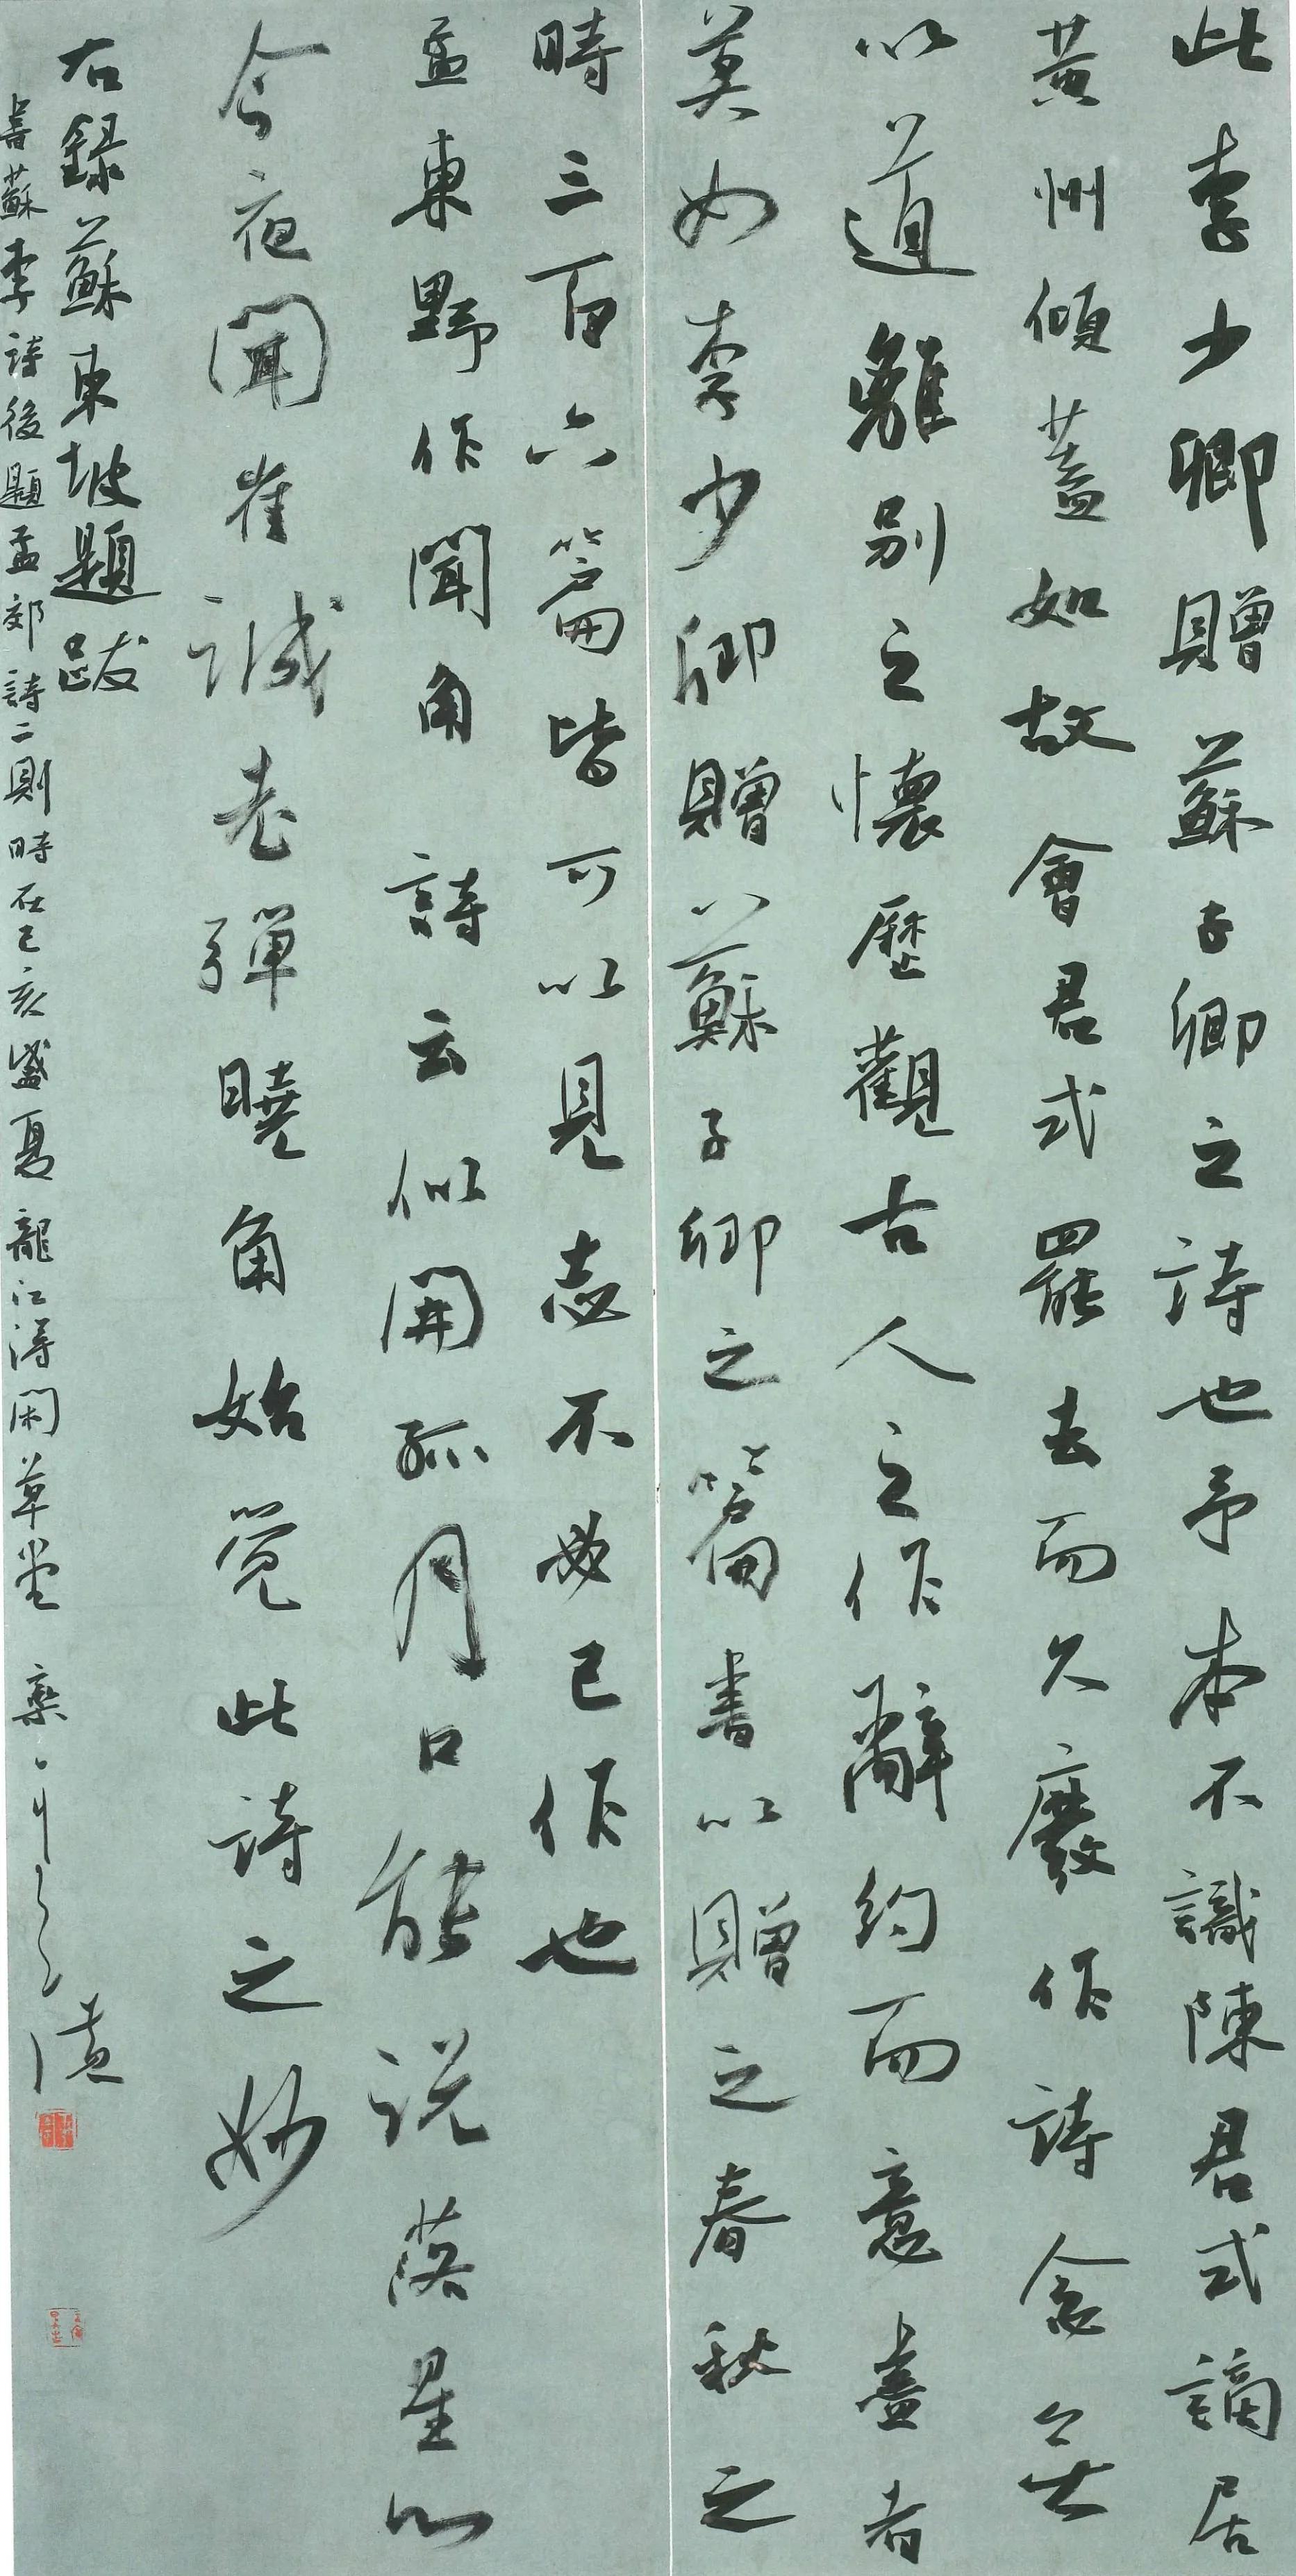 此李少卿贈蘇子卿之詩也予本不識陳君式謫居
黃州傾蓋如故會君式罷去而久廢作詩念無
以道離別之懷歷觀古人之作辭約而意盡者
莫如李少卿贈蘇子卿之篇書以贈之春秋之
時三百六篇皆可以見志不必己作也
孟東野作聞角詩云似開孤月口能說落星心
今夜聞崔誠老彈曉角始覺此詩之妙
右錄蘇東坡題跋
書蘇李詩後題孟郊詩二則時在己亥盛夏龍江得閑草堂